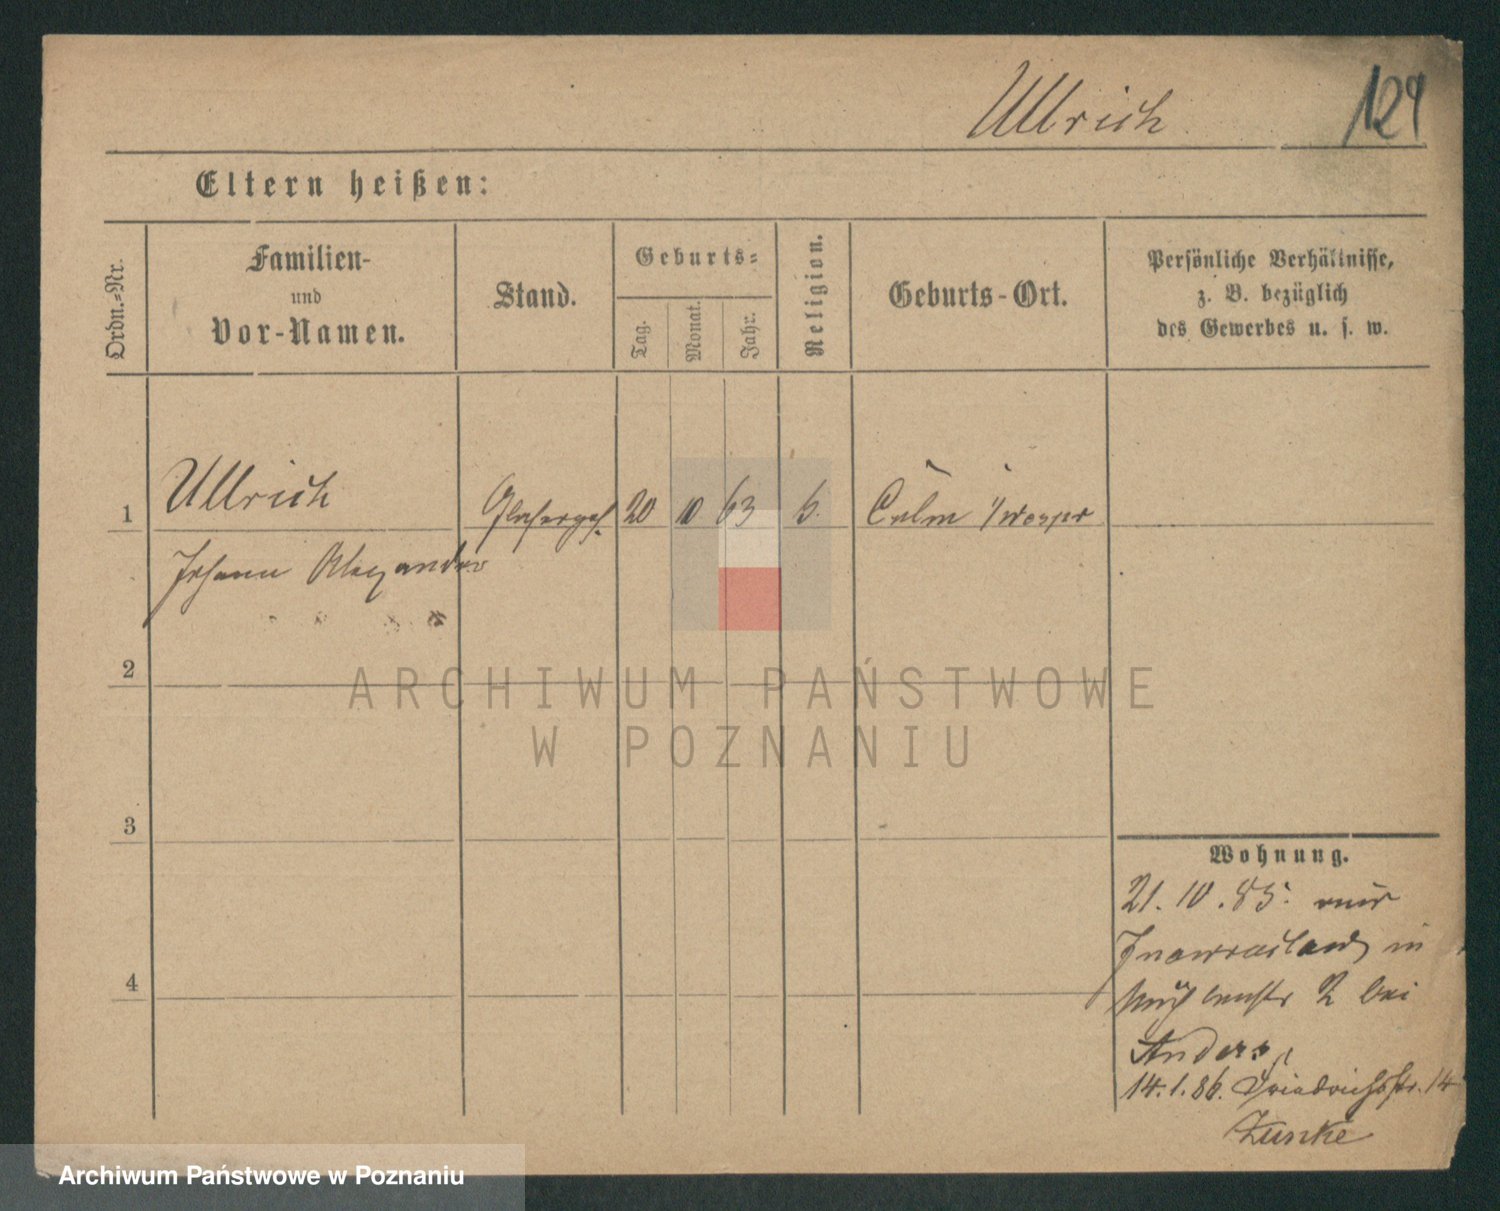 Ullrich 124
Eltern heißen:
Ordn.-Nr.
Familien-
und
Vor-Namen.
Stand.
Geburts-
Tag.
Monat.
Jahr.
Religion.
Geburts-Ort.
Persönliche Verhältnisse,
z. B. bezüglich
des Gewerbes u. s. w.
1 Ullrich Glasergeh. 20 10 63 Culm i/Wespr
Johann Alexander
2
3
4
ARCHIWUM PAŃSTWOWE
W POZNANIU
Wohnung.
21. 10. 85.
in
2 bei
Anders
14.1.86. Friedrichstr. 14
Zunke
Archiwum Państwowe w Poznaniu